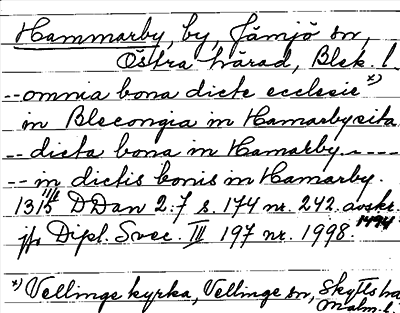 Hammarby, by, Jämjö sn,
Östra härad, Blek. l.
-- omnia bona dicte ecclesie x)
in Blecongia in Hamarby sita
-- dicta bona in Hamarby ----
-- in dictis bonis in Hamarby.
1315 11/4 DDan 2:7 s. 174 nr. 242. avskr. 1494
jfr Dipl. Svec. III 197 nr. 1998.
x) Vellinge kyrka, Vellinge sn, Skytts hd
Malm. l.